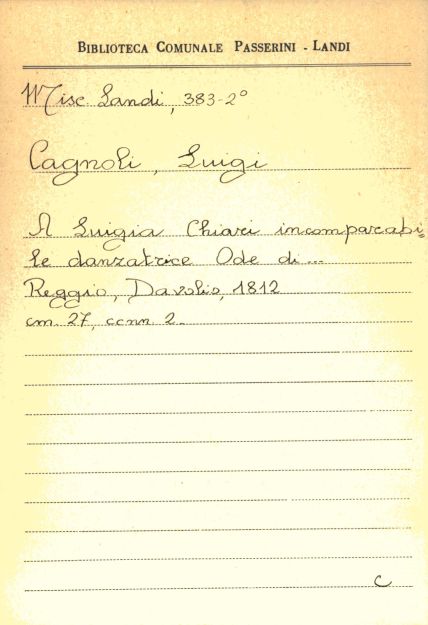 BIBLIOTECA COMUNALE PASSERINI - LANDI
Misc. Landi, 383-2°
Cagnoli, Luigi
A Luigia Chiari incomparabi=
le danzatrice Ode di...
Reggio, Davolio, 1812
cm. 27, ccnn. 2.
C